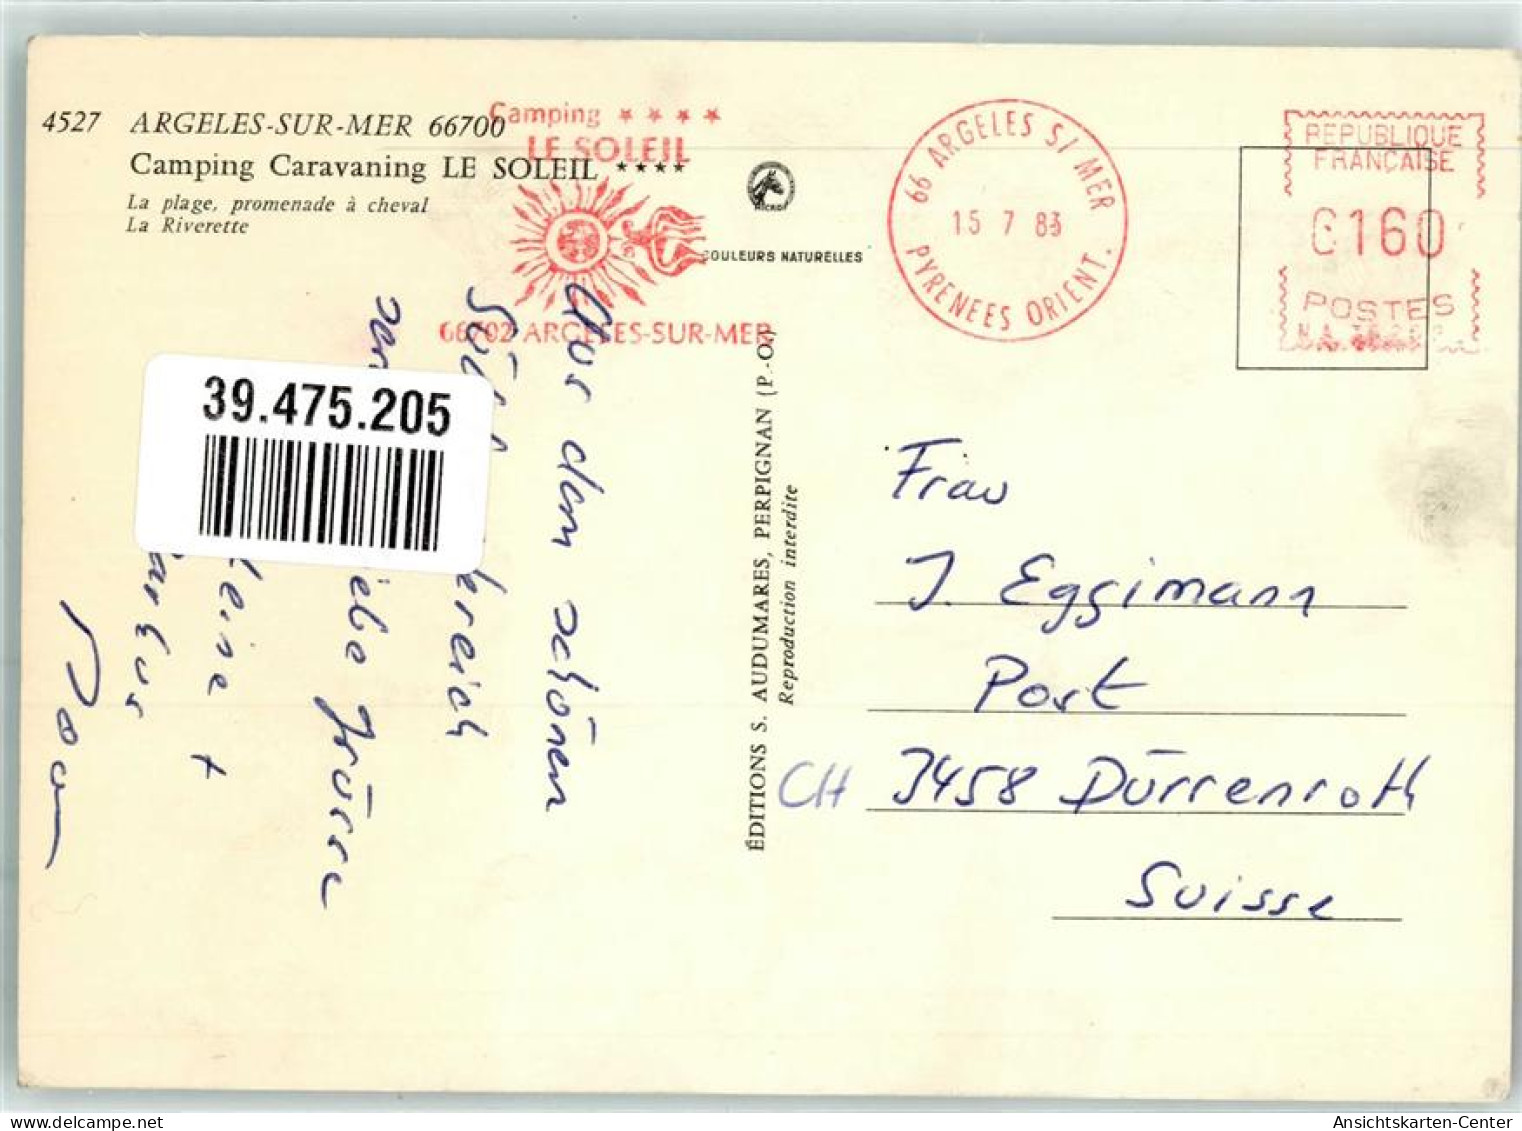 4527 ARGELES-SUR-MER 66700
Camping Caravaning LE SOLEIL ****
La plage, promenade à cheval
La Riverette
Camping ★ ★ ★ ★
LE SOLEIL
66702 ARGELES-SUR-MER
COULEURS NATURELLES
66 ARGELES S/ MER
15 7 83
PYRENEES ORIENT.
REPUBLIQUE
FRANÇAISE
0160
POSTES
39.475.205
Aus dem schönen
liebe Grüsse
ÉDITIONS S. AUDUMARES, PERPIGNAN (P.-O.)
Reproduction interdite
Frau
J. Eggimann
Post
CH 3458 Dürrenroth
Suisse
Ansichtskarten-Center